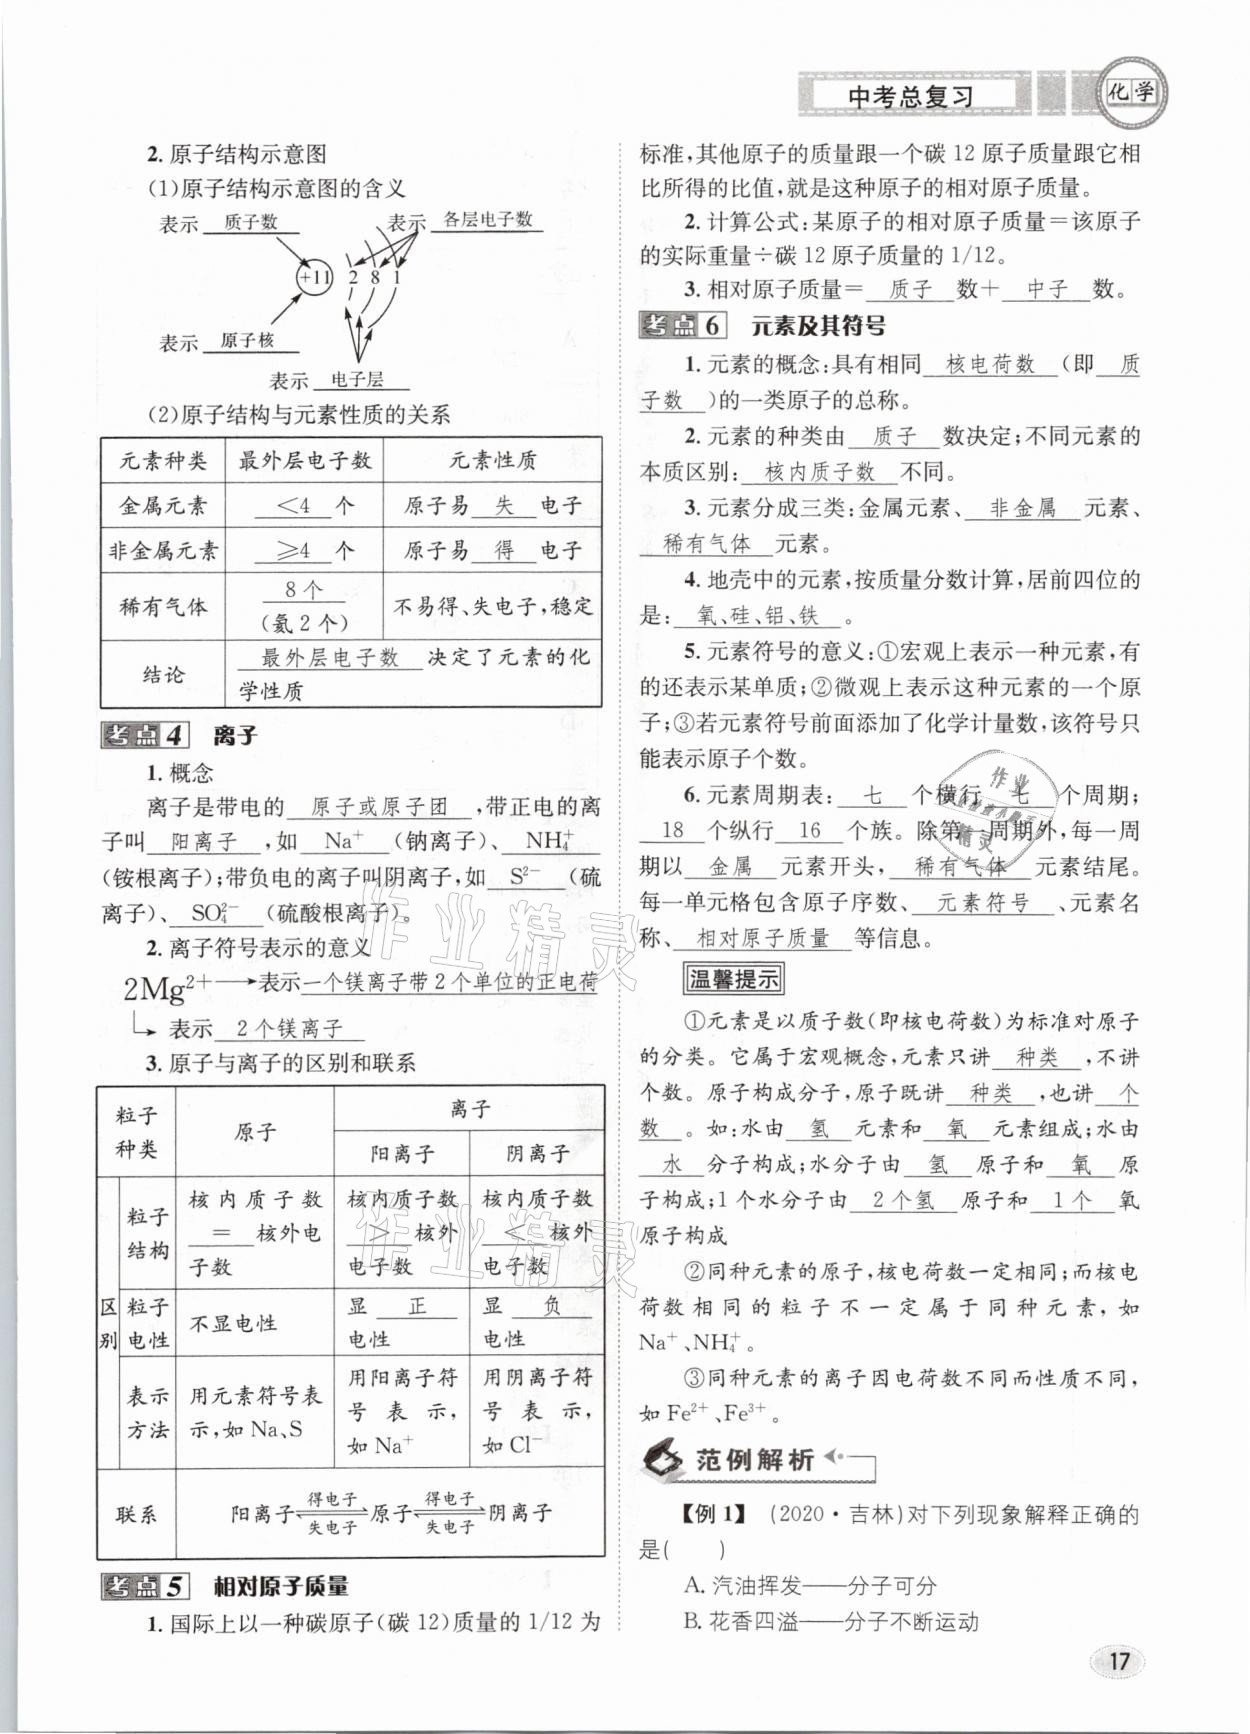 中考总复习
化学
2. 原子结构示意图
(1)原子结构示意图的含义
表示 质子数 表示 各层电子数
+11 2 8 1
表示 原子核
表示 电子层
(2)原子结构与元素性质的关系
元素种类 最外层电子数 元素性质
金属元素 <4 个 原子易 失 电子
非金属元素 ≥4 个 原子易 得 电子
稀有气体 8个 (氦2个) 不易得、失电子,稳定
结论 最外层电子数 决定了元素的化
学性质
考点4 离子
1. 概念
离子是带电的 原子或原子团 ,带正电的离
子叫 阳离子 ,如 Na⁺ (钠离子)、 NH₄⁺
(铵根离子);带负电的离子叫阴离子,如 S²⁻ (硫
离子)、 SO₄²⁻ (硫酸根离子)。
2. 离子符号表示的意义
2Mg²⁺→表示一个镁离子带2个单位的正电荷
表示 2个镁离子
3. 原子与离子的区别和联系
粒子种类 原子 离子
阳离子 阴离子
区别 粒子结构 核内质子数 = 核外电子数 核内质子数 > 核外电子数 核内质子数 < 核外电子数
粒子电性 不显电性 显 正 电性 显 负 电性
表示方法 用元素符号表示,如Na、S 用阳离子符号表示,如Na⁺ 用阴离子符号表示,如Cl⁻
联系 阳离子 得电子 失电子 原子 得电子 失电子 阴离子
考点5 相对原子质量
1. 国际上以一种碳原子(碳12)质量的1/12为
标准,其他原子的质量跟一个碳12原子质量跟它相
比所得的比值,就是这种原子的相对原子质量。
2. 计算公式:某原子的相对原子质量=该原子
的实际重量÷碳12原子质量的1/12。
3. 相对原子质量= 质子 数+ 中子 数。
考点6 元素及其符号
1. 元素的概念:具有相同 核电荷数 (即 质
子数 )的一类原子的总称。
2. 元素的种类由 质子 数决定;不同元素的
本质区别: 核内质子数 不同。
3. 元素分成三类:金属元素、 非金属 元素、
稀有气体 元素。
4. 地壳中的元素,按质量分数计算,居前四位的
是: 氧、硅、铝、铁 。
5. 元素符号的意义:①宏观上表示一种元素,有
的还表示某单质;②微观上表示这种元素的一个原
子;③若元素符号前面添加了化学计量数,该符号只
能表示原子个数。
6. 元素周期表: 七 个横行 七 个周期;
18 个纵行 16 个族。除第一周期外,每一周
期以 金属 元素开头, 稀有气体 元素结尾。
每一单元格包含原子序数、 元素符号 、元素名
称、 相对原子质量 等信息。
温馨提示
①元素是以质子数(即核电荷数)为标准对原子
的分类。它属于宏观概念,元素只讲 种类 ,不讲
个数。原子构成分子,原子既讲 种类 ,也讲 个
数 。如:水由 氢 元素和 氧 元素组成;水由
水 分子构成;水分子由 氢 原子和 氧 原
子构成;1个水分子由 2个氢 原子和 1个 氧
原子构成
②同种元素的原子,核电荷数一定相同;而核电
荷数相同的粒子不一定属于同种元素,如
Na⁺、NH₄⁺。
③同种元素的离子因电荷数不同而性质不同,
如Fe²⁺、Fe³⁺。
范例解析
【例1】 (2020·吉林)对下列现象解释正确的
是( )
A. 汽油挥发——分子可分
B. 花香四溢——分子不断运动
17
作业精灵
作业精灵